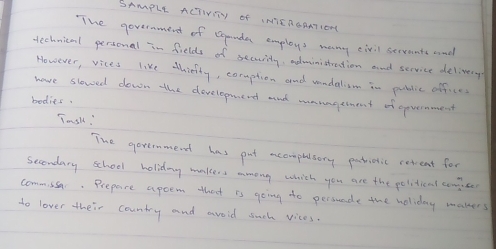 SAMPLE ACTIVITY OF INTERGRATION
The government of Uganda employs many civil servants and
technical personal in fields of security, administration and service delivery.
However, vices like thiefty, coruption and vandalism in public offices
have slowed down the development and management of government
bodies.
Task:
The government has put acomplsory patriotic retreat for
Secondary school holiday makers among which you are the political
commissa. Prepare apoem that is going to persuade the holiday makers
to lover their country and avoid such vices.